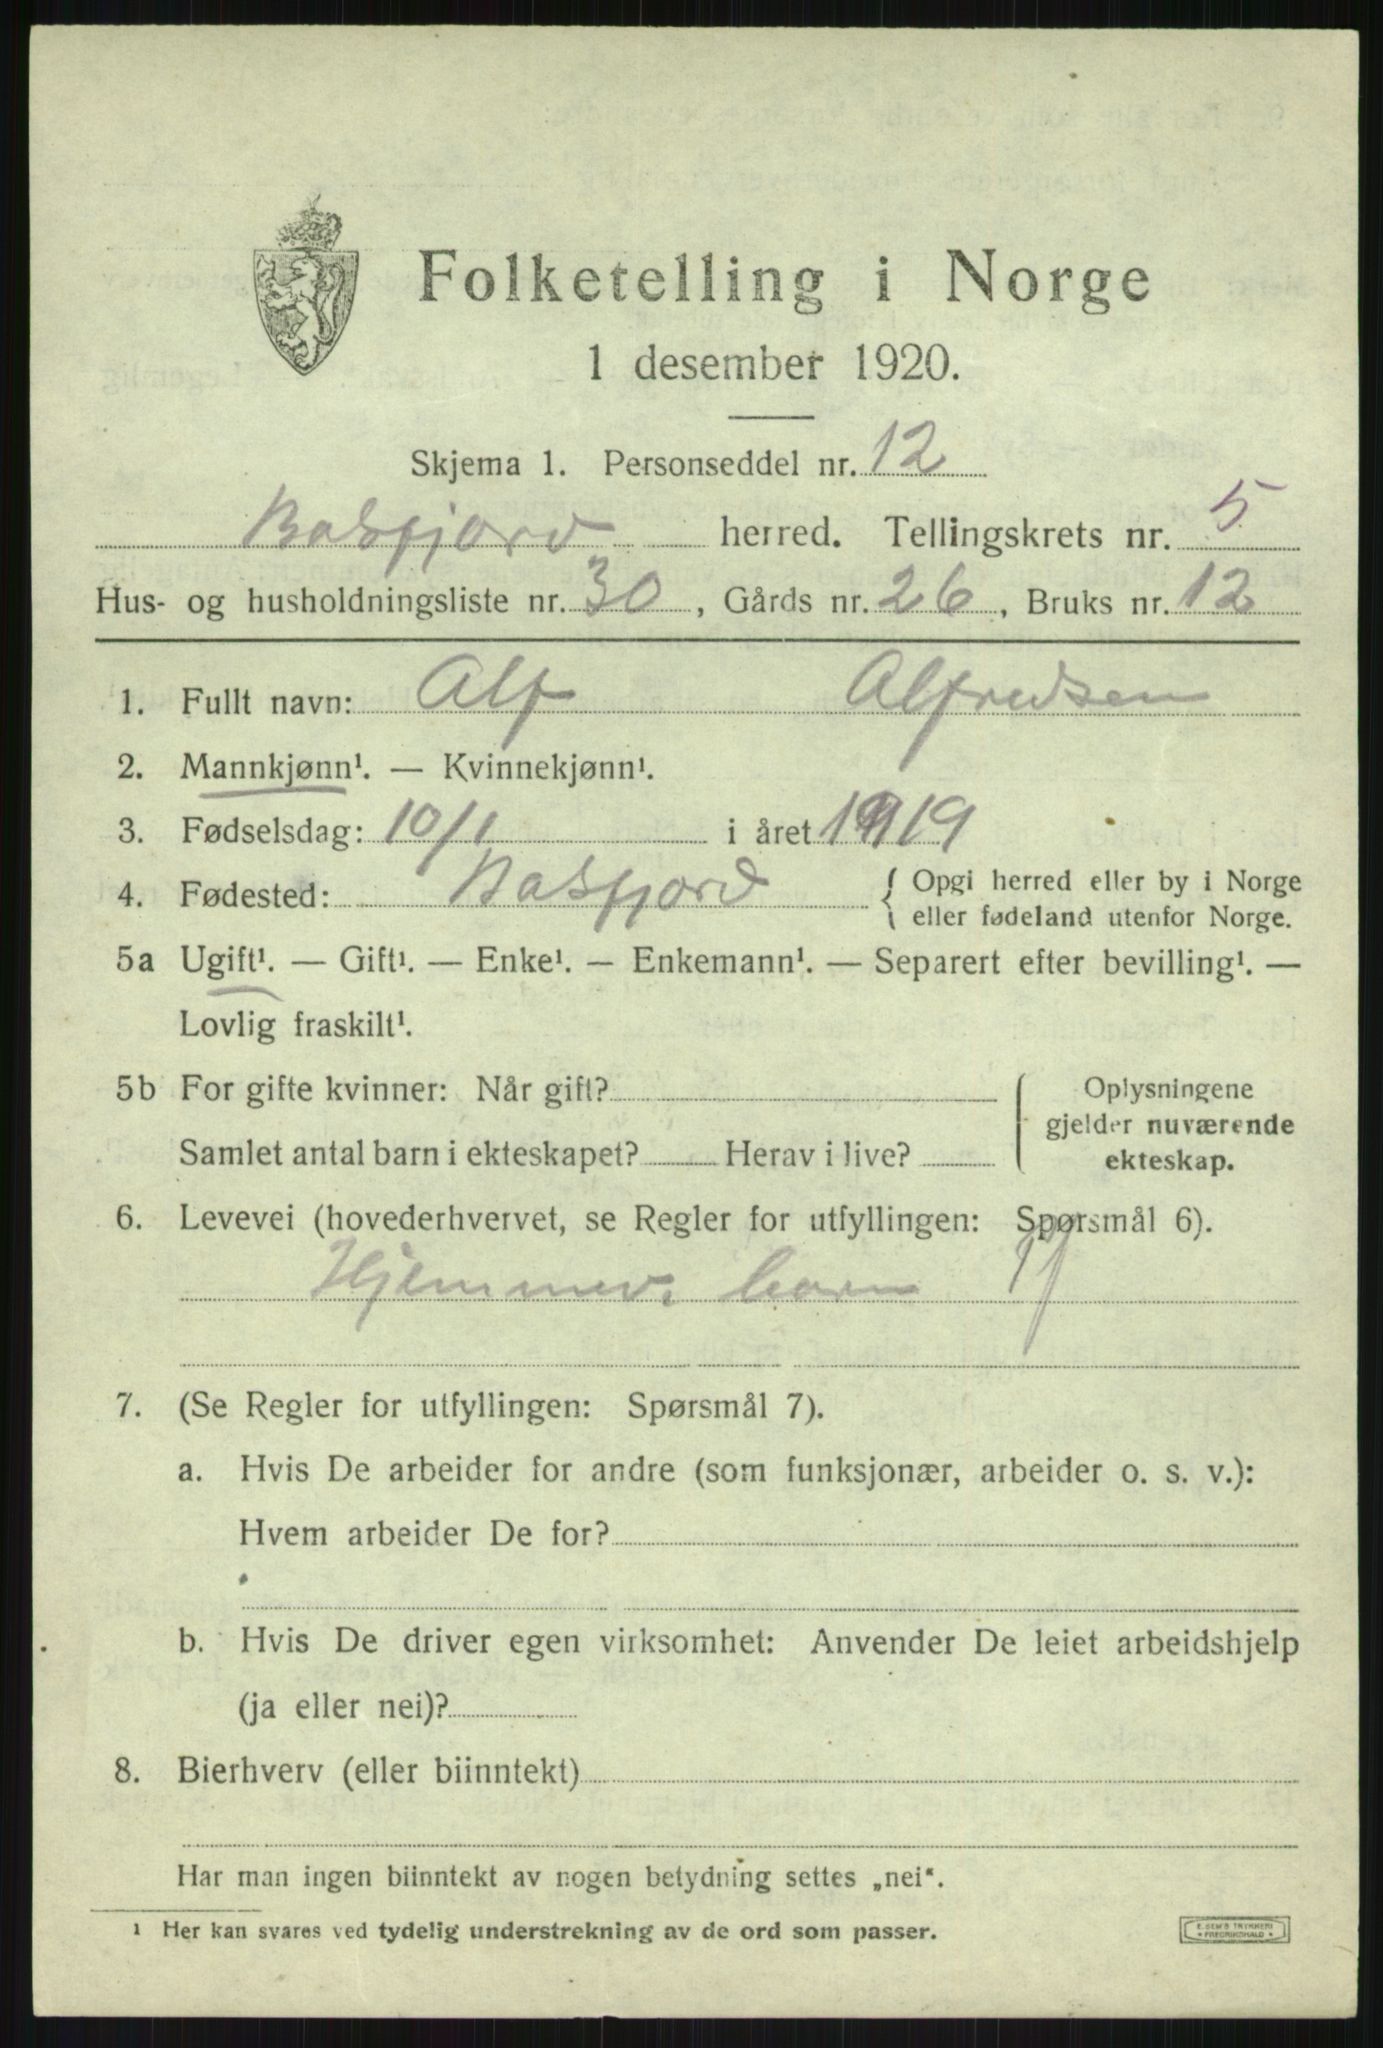 Folketelling i Norge
1 desember 1920.
Skjema 1. Personseddel nr. 12
Balsfjord herred. Tellingskrets nr. 5
Hus- og husholdningsliste nr. 30, Gårds nr. 26, Bruks nr. 12
1. Fullt navn: Alf Alfredsen
2. Mannkjønn¹. — Kvinnekjønn¹.
3. Fødselsdag: 10/1 i året 1919
4. Fødested: Balsfjord { Opgi herred eller by i Norge
eller fødeland utenfor Norge.
5a Ugift¹. — Gift¹. — Enke¹. — Enkemann¹. — Separert efter bevilling¹. —
Lovlig fraskilt¹.
5b For gifte kvinner: Når gift?
Samlet antal barn i ekteskapet? Herav i live?
Oplysningene
gjelder nuværende
ekteskap.
6. Levevei (hovederhvervet, se Regler for utfyllingen: Spørsmål 6).
Hjemmev. barn
7. (Se Regler for utfyllingen: Spørsmål 7).
a. Hvis De arbeider for andre (som funksjonær, arbeider o. s. v.):
Hvem arbeider De for?
b. Hvis De driver egen virksomhet: Anvender De leiet arbeidshjelp
(ja eller nei)?
8. Bierhverv (eller biinntekt)
Har man ingen biinntekt av nogen betydning settes „nei“.
1 Her kan svares ved tydelig understrekning av de ord som passer.
E. SEM'S TRYKKERI
FREDRIKSHALD